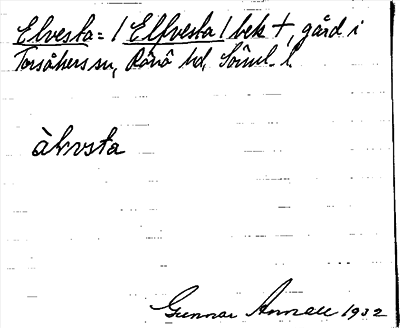 Elvesta = / Elfvesta / bek †, gård i
Torsåkers sn, Rönö hd, Söml. l.
àlvsta
Gunnar Annell 1932